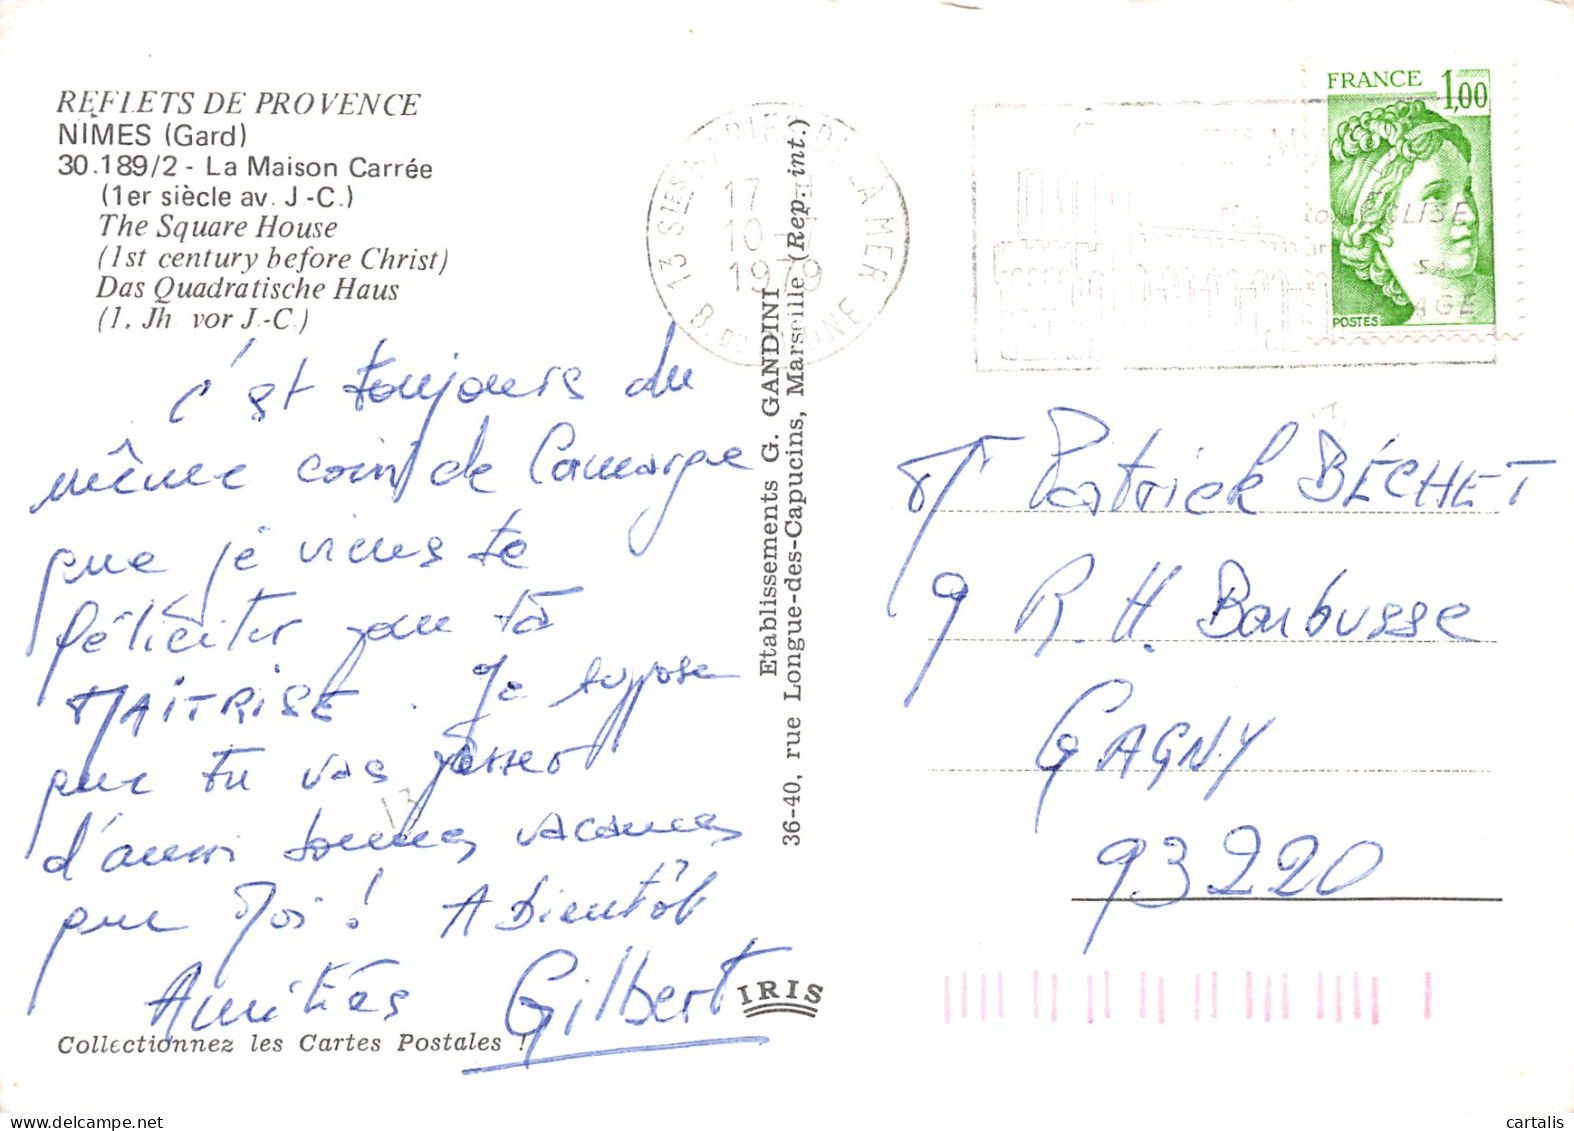 REFLETS DE PROVENCE
NÎMES (Gard)
30.189/2 - La Maison Carrée
(1er siècle av. J.-C.)
The Square House
(1st century before Christ)
Das Quadratische Haus
(1. Jh. vor J.-C.)
C'est toujours du
même coin de Camargue
que je viens te
féliciter pour ta
MAÎTRISE. Je suppose
que tu vas passer
d'aussi bonnes vacances
que moi ! A Bientôt
Amitiés Gilbert
Collectionnez les Cartes Postales !
IRIS
Etablissements G. GANDINI
36-40, rue Longue-des-Capucins, Marseille (Rep. int.)
13 STES MARIES DE LA MER
17
10-7
1979
B. DU RHONE
FRANCE 1,00
POSTES
EGLISE
AGE
Mr Patrick BÉCHET
9 R. H. Barbusse
GAGNY
93220
13
cartalis
www.delcampe.net